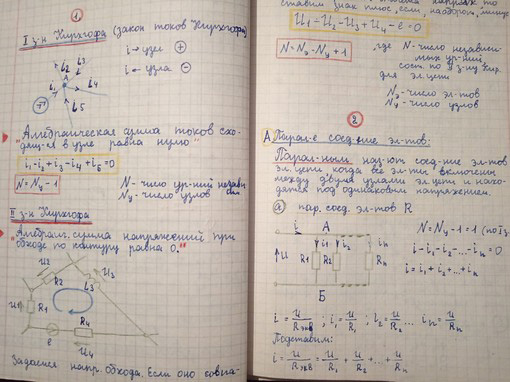 ①
I з-н Кирхгофа (закон токов Кирхгофа)
i → узел ⊕
i ← узла ⊖
i1 i2 i3 i4 i5
A
"Алгебраическая сумма токов схо-
дящ-ся в узле равна нулю"
i1-i2+i3-i4+i5=0
N=Nу-1
N - число ур-ний незави
сим.
Nу - число узлов
II з-н Кирхгофа
"Алгебраич. сумма напряжений при
обходе по контуру равна 0."
U2
R2
U3
R3
U1
R1
e
R4
U4
Задаемся напр. обхода. Если оно совпа-
ставим знак плюс, если, наоборот, минус
U1-U2-U3+U4-e=0
N=Nэ-Nу+1
где N - число независи
мых ур-ний
сост. по II з-ну Кир.
для эл. цепи
Nэ - число эл-тов
Nу - число узлов
②
А. Парал-е соед-ние эл-тов:
Парал-ным наз-ют соед-ние эл-тов
эл. цепи, когда все эл-ты включены
между двумя узлами эл. цепи и нахо-
дятся под одинаковым напряжением.
① пар. соед. эл-тов R
i A
U
i1 i2 in
R1 R2 Rn
Б
N=Nу-1=1 (по I з.
i-i1-i2-...-in=0
i=i1+i2+...+in
i = U/Rэкв ; i1 = U/R1 ; i2 = U/R2 ... in = U/Rn
Подставим:
i = U/Rэкв = U/R1 + U/R2 + ... + U/Rn